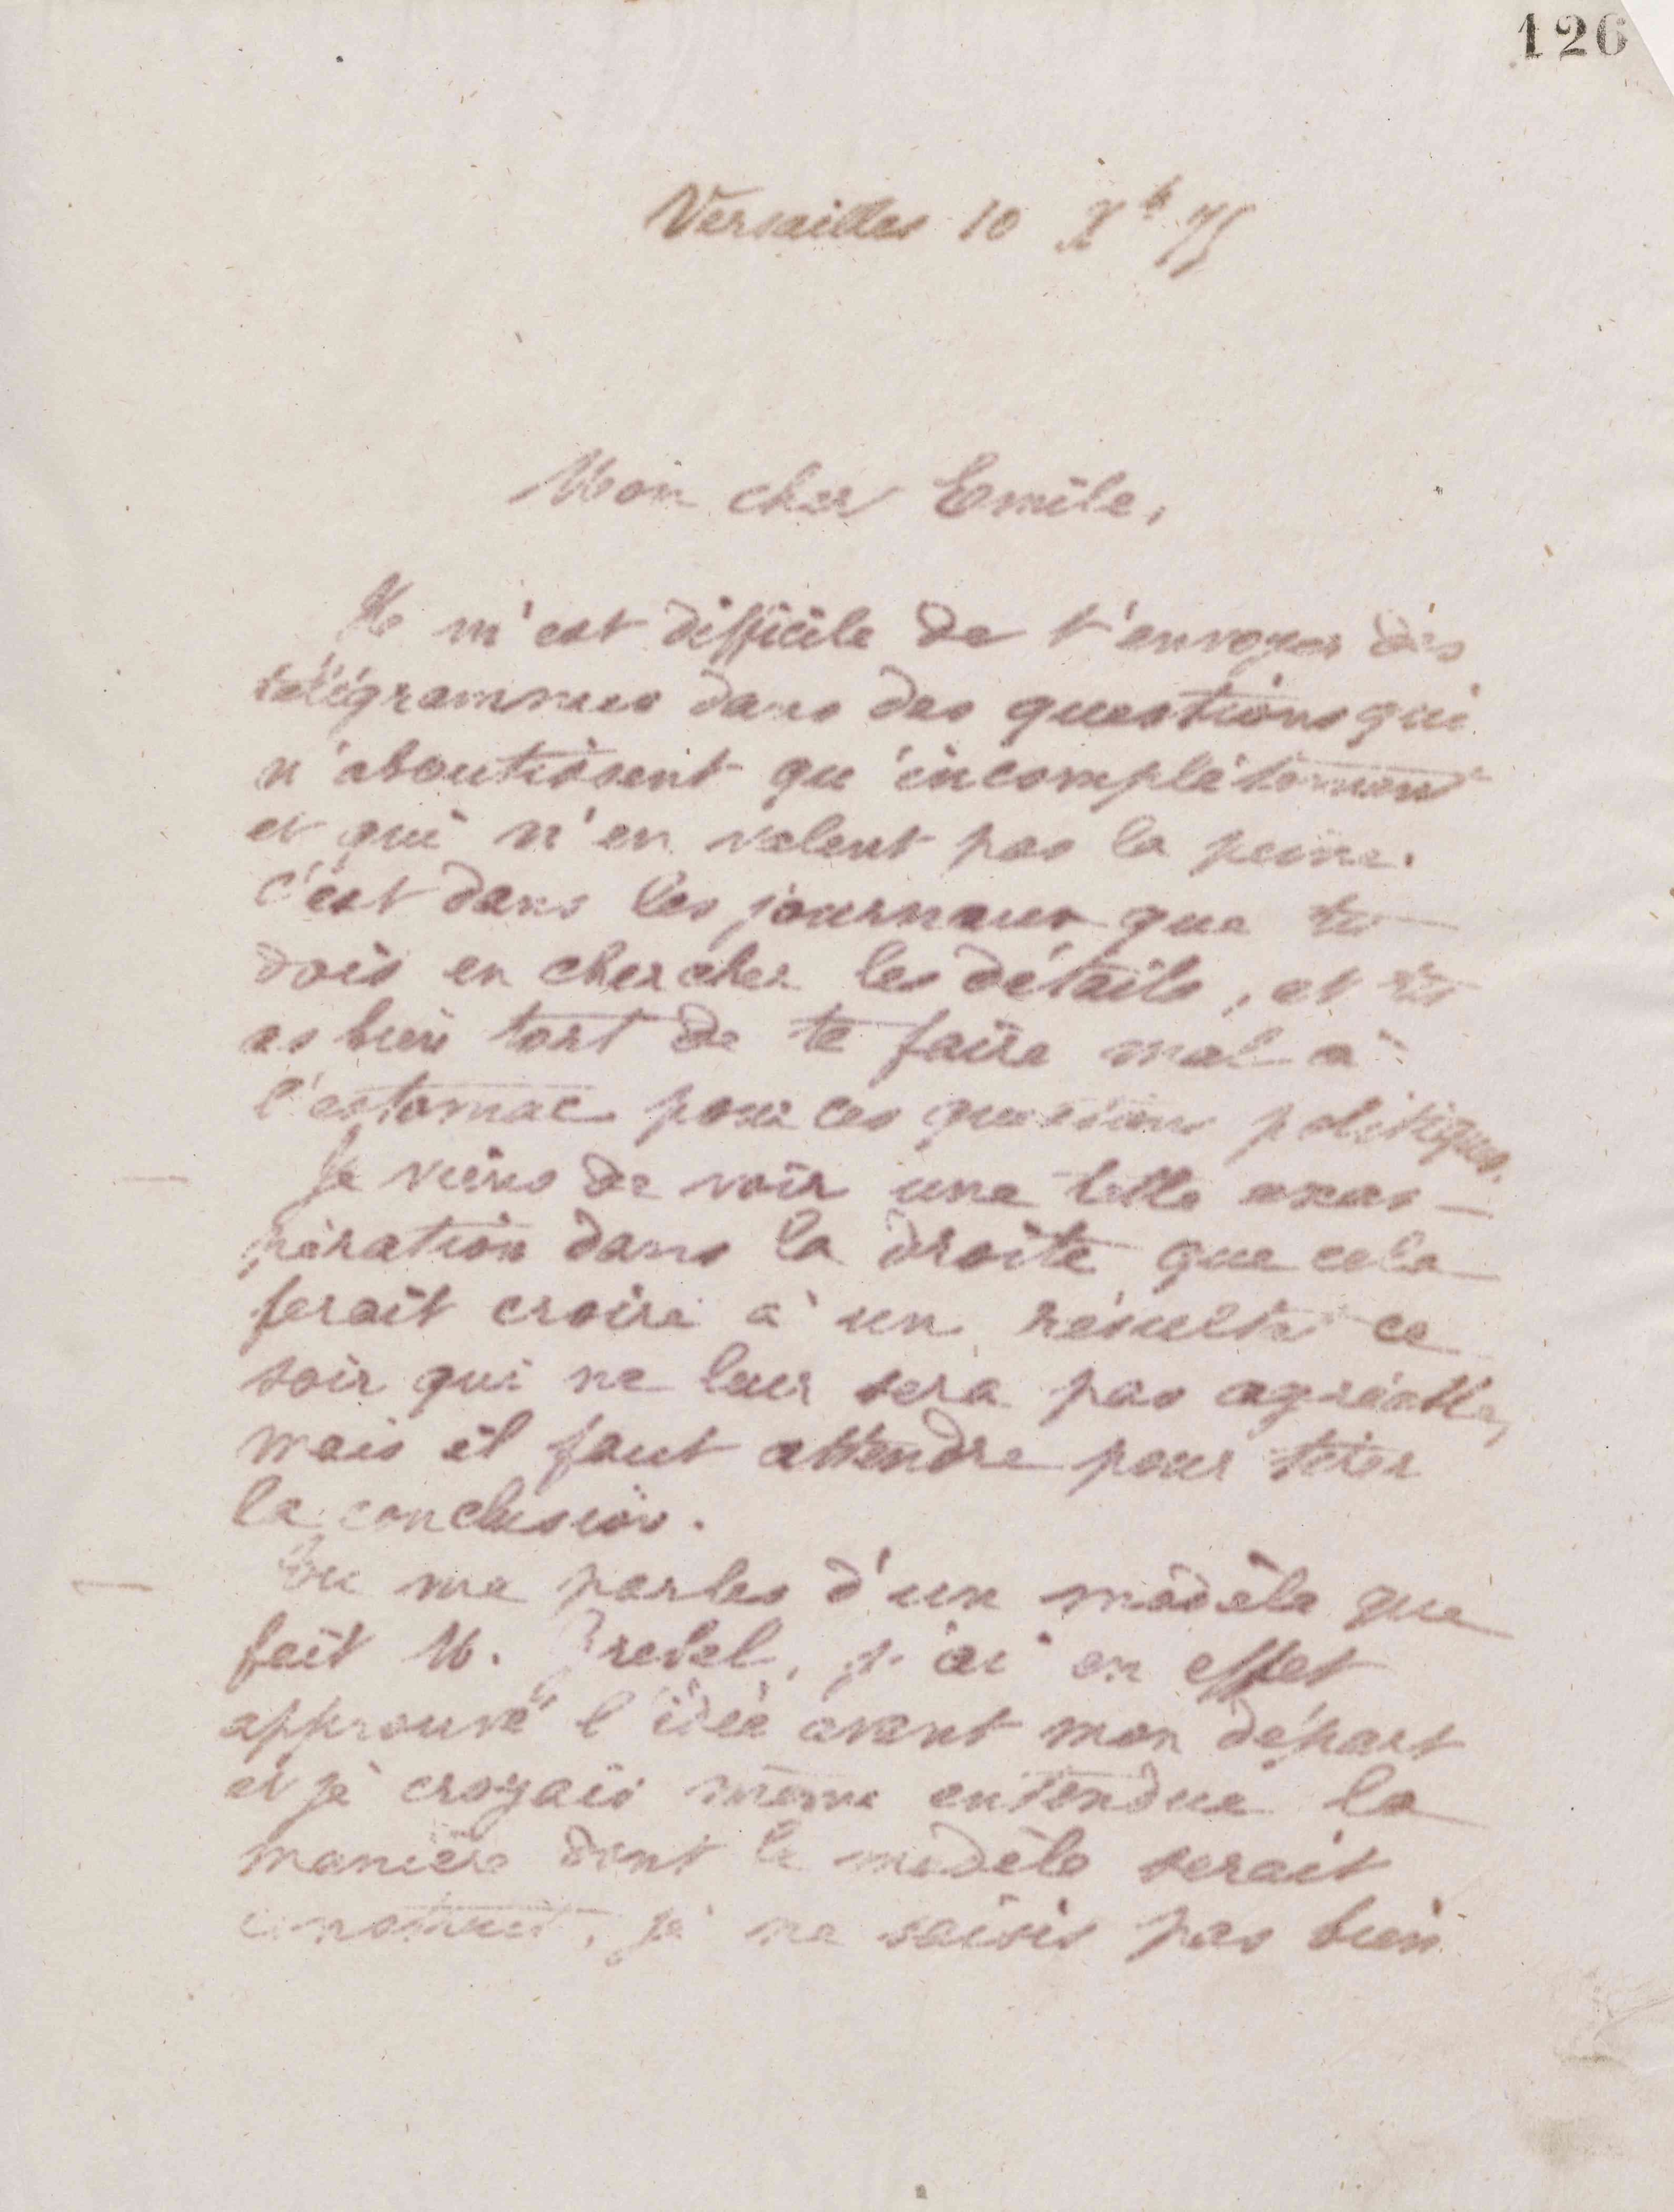 126
Versailles 10 Xb 75
Mon cher Emile,
Il m'est difficile de t'envoyer des
télégrammes dans des questions qui
n'aboutissent qu'incomplètement
et qui n'en valent pas la peine.
C'est dans les journaux que tu
dois en chercher les détails, et tu
as bien tort de te faire mal à
l'estomac pour ces questions politiques.
Je viens de voir une telle exas-
pération dans la droite que cela
ferait croire à un résultat ce
soir qui ne leur sera pas agréable,
mais il faut attendre pour tirer
la conclusion.
Tu me parles d'un modèle que
fait M. j'ai en effet
approuvé l'idée avant mon départ
et je croyais même entendue la
manière dont le modèle serait
construit, je ne saisis pas bien